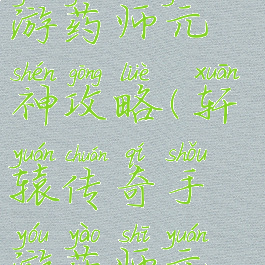 游药师元
shén gōng lüè xuān
神攻略(轩
yuán chuán qí shǒu
辕传奇手
yóu yào shī yuán
游药师元